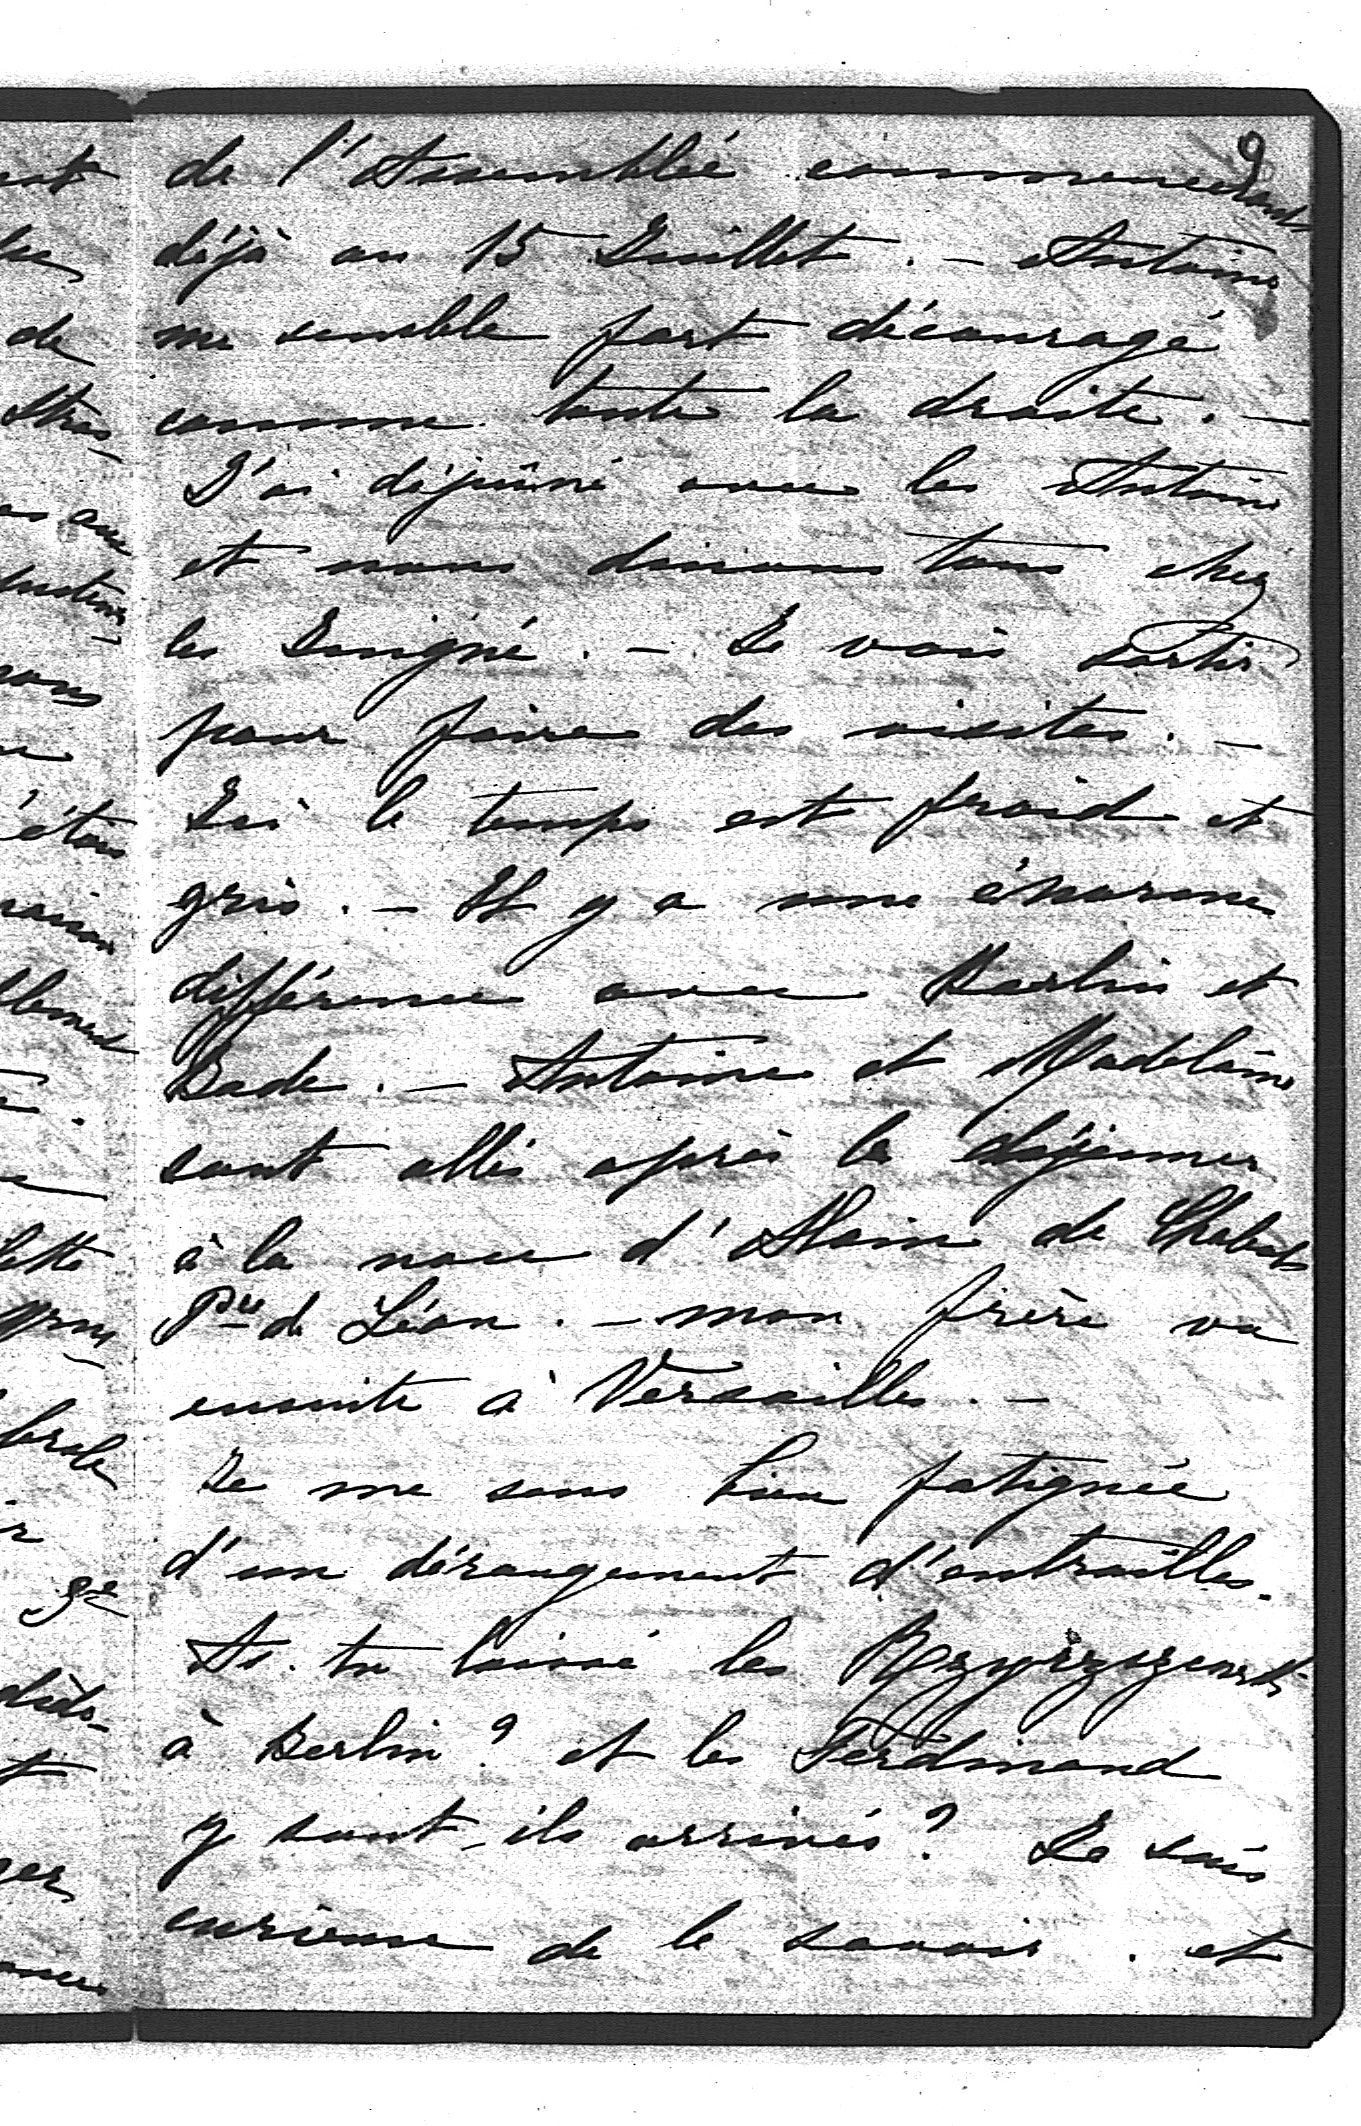 9
de l'Assemblée commencerant
déjà au 15 Juillet. – Antoine
me semble fort découragé
comme toute la droite. –
J'ai déjeûné avec les Antoine
et nous dinons tous chez
les Juigné. – Je vais sortir
pour faire des visites. –
Ici le temps est froid et
gris. – Il y a une énorme
différence avec Berlin et
Bade. – Antoine et Madeleine
sont allés après le déjeuner
à la noce d'Alain de Chabot
Pce de Léon. – mon frère va
ensuite à Versailles. –
Je me sens bien fatiguée
d'un dérangement d'entrailles.
As-tu laissé les
à Berlin? et les Ferdinand
y sont-ils arrivés? Je suis
curieuse de le savoir. et